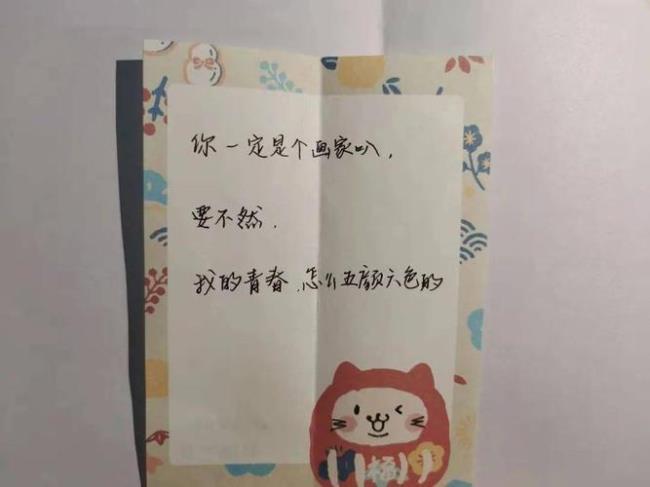 你一定是个画家叭,
要不然,
我的青春,怎么五颜六色的